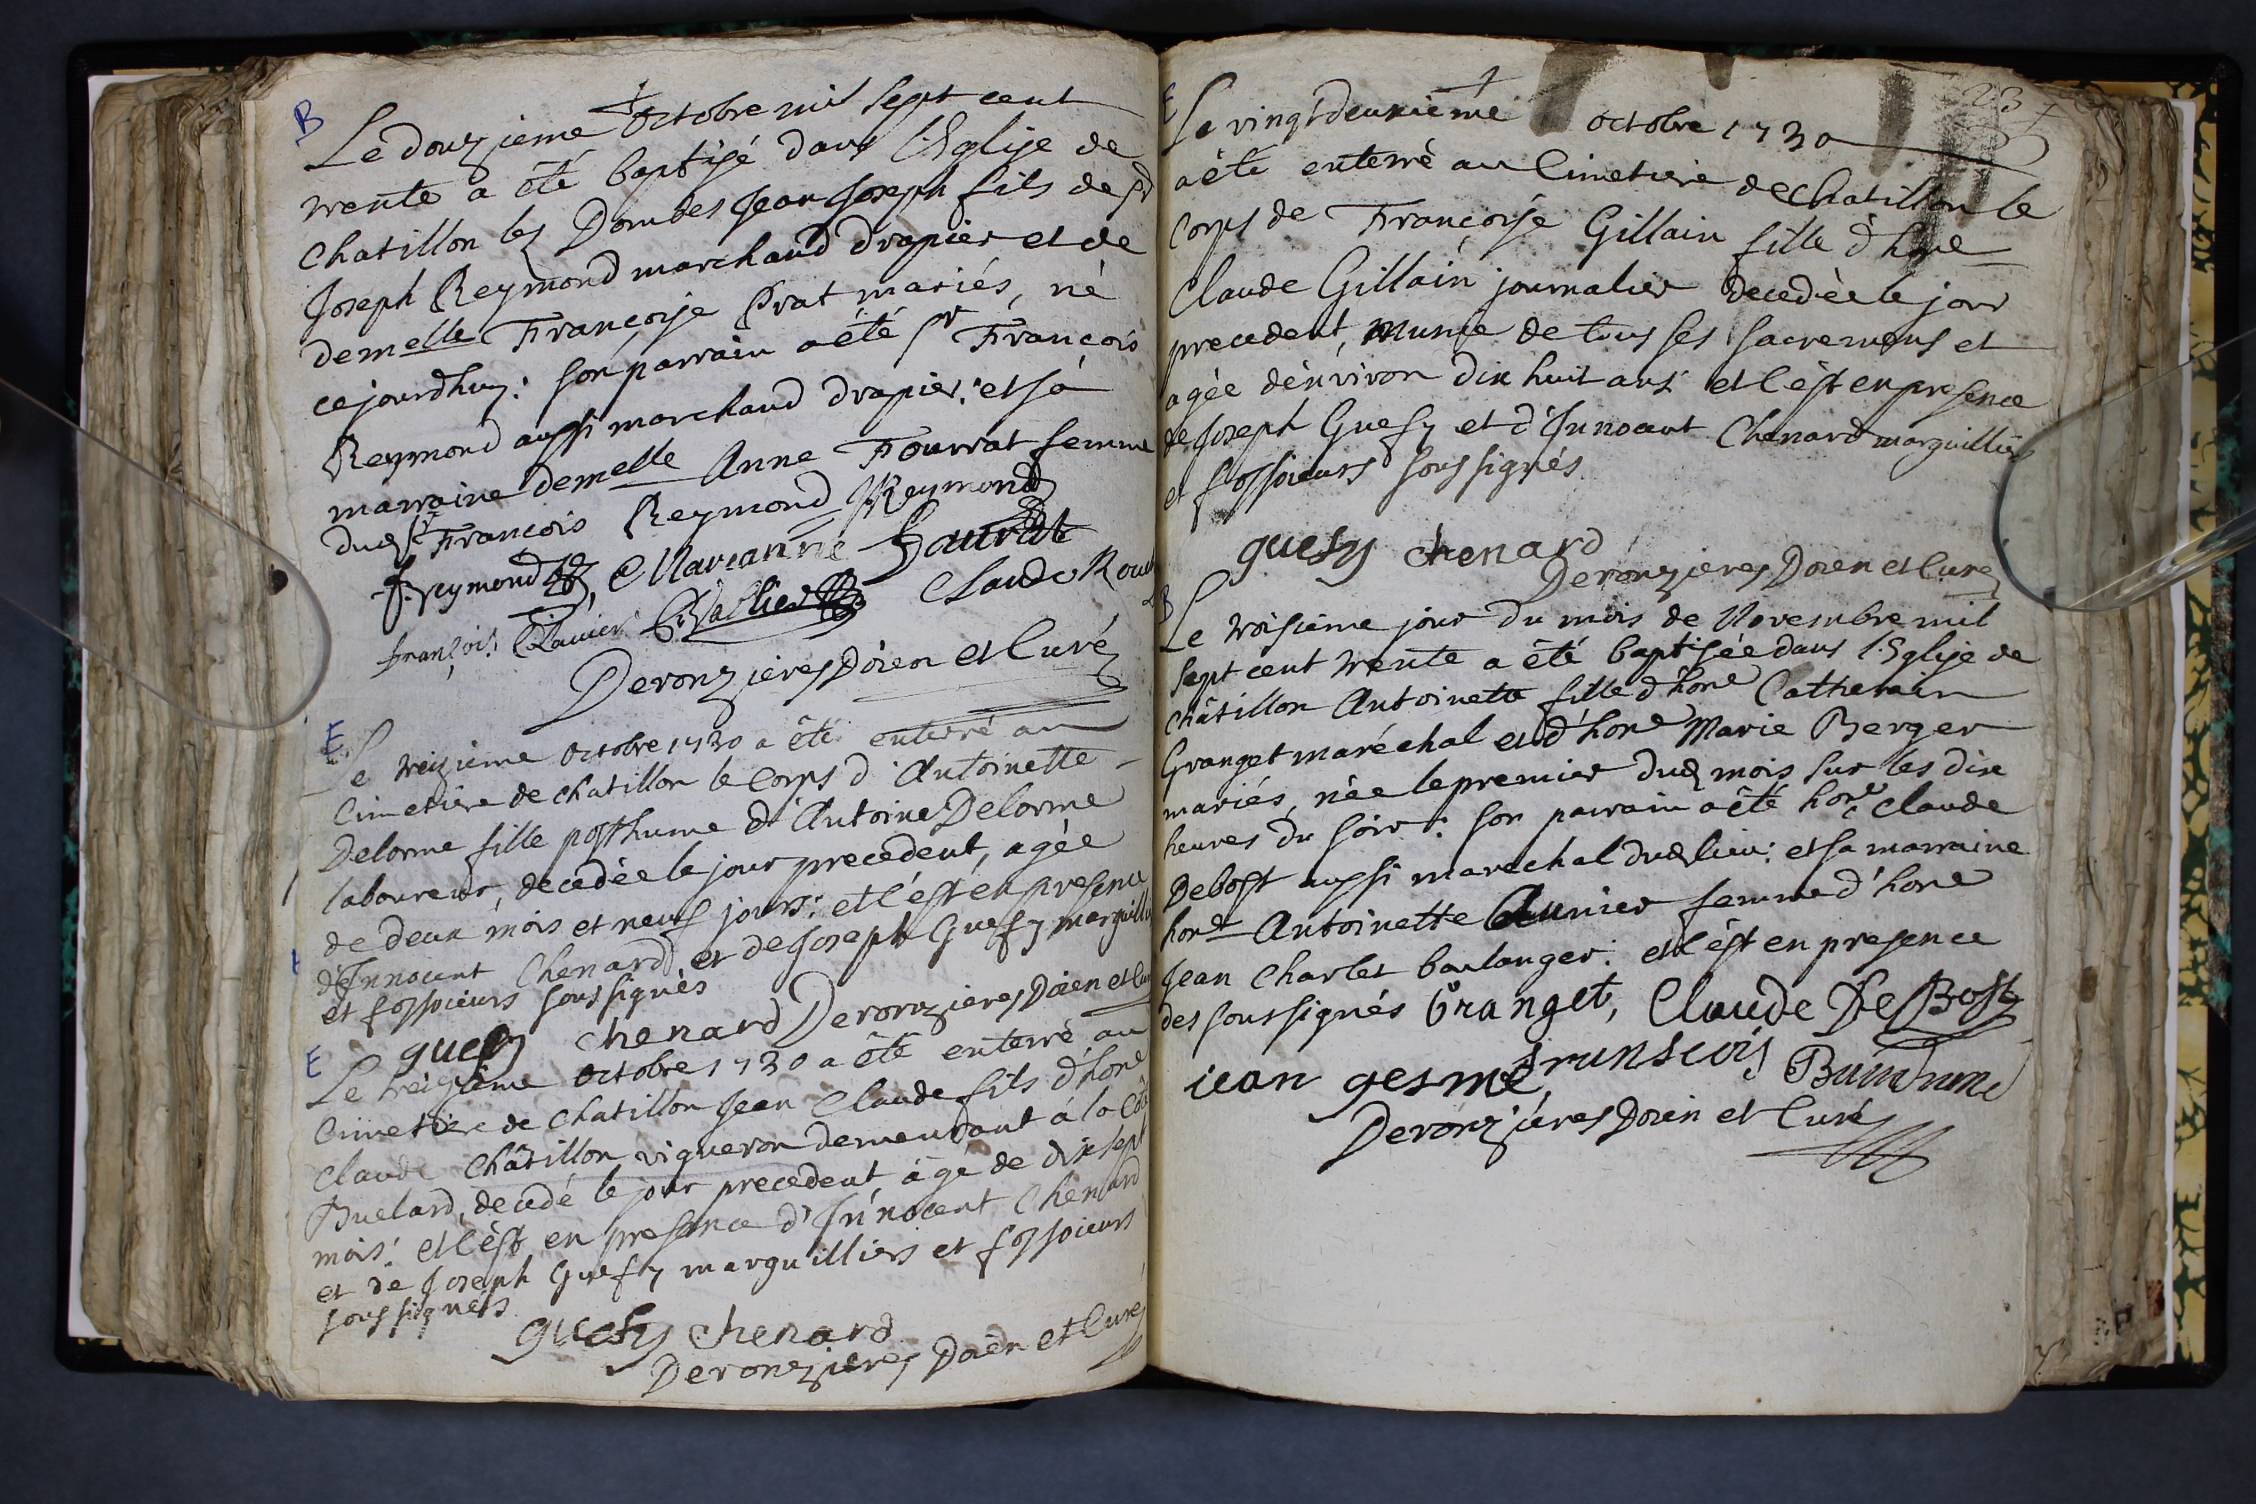 B
Le douzieme octobre mil sept cent
trente a été baptisé dans l'Eglise de
chatillon les Dombes Jean Joseph fils de Sr
Joseph Reymond marchand drapier et de
demelle Françoise Prat mariés, né
cejourdhuy: son parrain a été Sr François
Reymond aussi marchand drapier: et sa
marraine demelle Anne Fourrat femme
dud Sr François Reymond JReymond
f. reymond, Marianne
françois Vallier Claude
Deronzieres Doien et Curé
E
Le treizieme octobre 1730 a été enterré au
Cimetiere de chatillon le corps d'Antoinette
Delorme fille posthume d'Antoine Delorme
laboureur, decedée le jour precedent, agée
de deux mois et neuf jours: et c'est en presence
d'Innocent Chenard et de Joseph Guesy marguilliers
et fossoieurs soussignés
guesy chenard Deronzieres Doien et Curé
E
Le treizieme octobre 1730 a été enterré au
Cimetiere de chatillon Jean Claude fils d'hone
Claude Châtillon vigneron demeurant à la
Buelard, decedé le jour precedent agé de dix sept
mois: et c'est en presence d'Innocent Chenard
et de Joseph Guesy marguilliers et fossoieurs
soussignés
guesy chenard
Deronzieres Doien et Curé
23
E
Le vingtdeuxième octobre 1730
a été enterré au Cimetiere de Chatillon le
corps de Françoise Gillain fille d'hone
Claude Gillain journalier decedée le jour
precedent, munie de tous ses sacremens et
agée d'environ dix huit ans: et c'est en presence
de Joseph Guesy et d'Innocent Chenard marguilliers
et fossoieurs soussignés
guesy chenard
Deronzieres Doien et Curé
B
Le troisieme jour du mois de Novembre mil
sept cent trente a été baptisée dans l'Eglise de
châtillon Antoinette fille d'hone Catherin
Granget maréchal et d'hone Marie Berger
mariés, née le premier dud mois sur les dix
heures du soir: son parrain a été hone Claude
Debost aussi marechal dud lieu: et sa marraine
hone Antoinette Aunier femme d'hone
Jean Charles boulanger: et c'est en presence
des soussignés Granget, Claude De Bost
jean gesme frunscois
Deronzières Doien et Curé